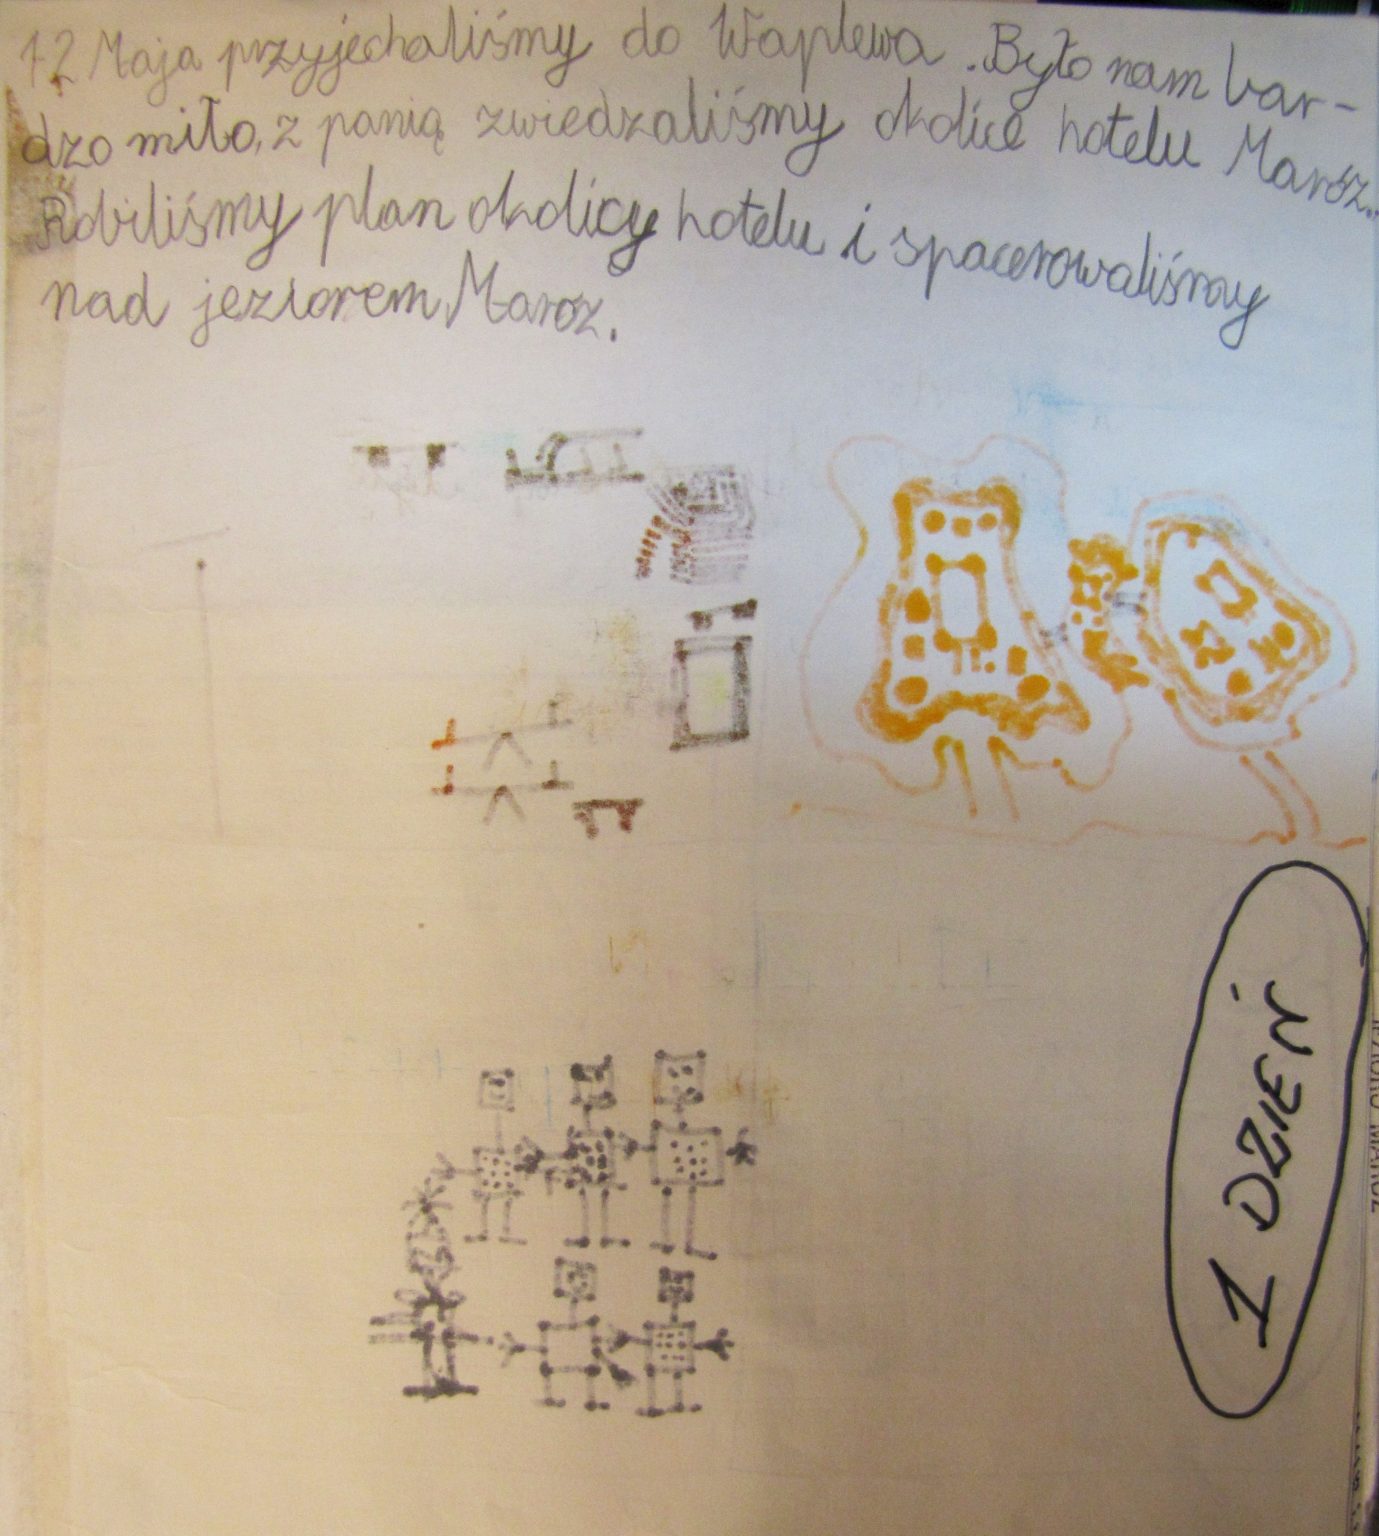 12 Maja przyjechaliśmy do Waplewa. Było nam bar-
dzo miło, z panią zwiedzaliśmy okolice hotelu Maróz.
Robiliśmy plan okolicy hotelu i spacerowaliśmy
nad jeziorem Maróz.
1 DZIEŃ